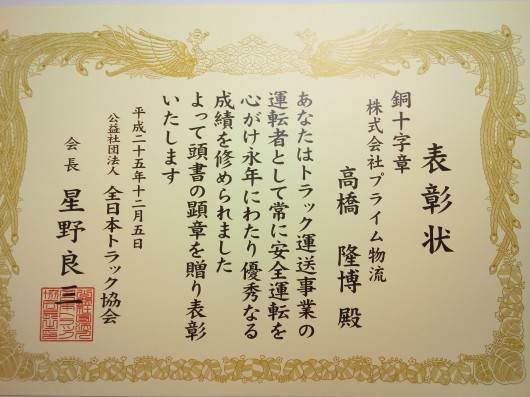 表彰状
銅十字章
株式会社プライム物流
高橋 隆博 殿
あなたはトラック運送事業の
運転者として常に安全運転を
心がけ永年にわたり優秀なる
成績を修められました
よって頭書の顕章を贈り表彰
いたします
平成二十五年十二月五日
公益社団法人 全日本トラック協会
会長 星野良三